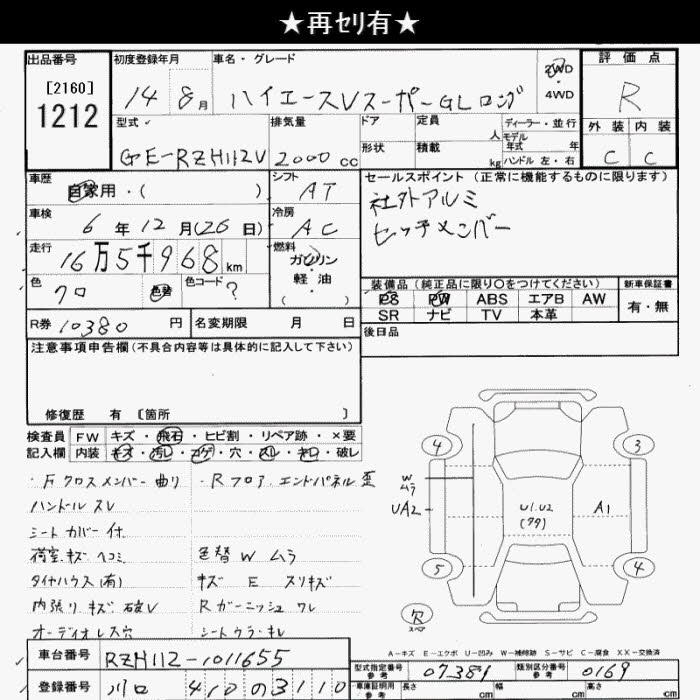 ★再ｾﾘ有★
出品番号
[2160]
1212
初度登録年月
14年 8月
車名・グレード
ハイエースVスーパーGLロング
2WD
4WD
評価点
R
型式
GE-RZH112V
排気量
2000cc
ドア
形状
定員
人
積載
kg
ディーラー・並行
モデル
年式 年
ハンドル 左・右
外装 内装
C C
車歴
自家用・( )
シフト
AT
車検
6年12月(26日)
冷房
AC
走行
16万5千968km
燃料
ガソリン
軽油
( )
色
クロ
色替
色コード
?
R券 10380円
名変期限 月 日
セールスポイント (正常に機能するものに限ります)
社外アルミ
ヒッチメンバー
装備品 (純正品に限り○をつけてください)
PS PW ABS エアB AW
SR ナビ TV 本革
新車保証書
有・無
後日品
注意事項申告欄(不具合内容等は具体的に記入して下さい)
修復歴 有 [箇所 ]
検査員
記入欄
FW キズ・飛石・ヒビ割・リペア跡・×要
内装 キズ・汚レ・コゲ・穴・スレ・キレ・破レ
・Fクロスメンバー曲り
・Rフロア.エンドパネル歪
ハンドルスレ
シートカバー付
荷室キズヘコミ
色替Wムラ
タイヤハウス(有)
キズ E スリキズ
内張りキズ破レ
Rガーニッシュワレ
オーディオレス穴
シートウラキレ
4 3
W
ムラ
UA2
U1.U2
A1
5 4
欠
スペア
A－キズ E－エクボ U－凹み W－補修跡 S－サビ C－腐食 XX－交換済
車台番号
RZH112-1011655
登録番号
川口 410 の 3110
型式指定番号
参考
07389
類別区分番号
参考
0169
車庫証明用
参考
長さ cm
幅 cm
高さ cm